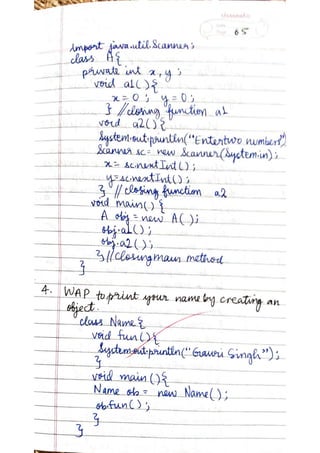 classmate
65
import java.util.Scanner;
class A{
private int x, y ;
void a1( ){
x=0 ; y=0 ;
} //closing function a1
void a2( ){
System.out.println("Enter two numbers")
Scanner sc= new Scanner(System.in);
x= sc.nextInt( );
y=sc.nextInt( );
} //closing function a2
void main( ){
A obj = new A( );
obj.a1( );
obj.a2( );
} //closing main method
}
4. WAP to print your name by creating an
object.
class Name{
void fun( ){
System.out.println("Gauri Singh");
}
void main( ){
Name ob = new Name( );
ob.fun( );
}
}